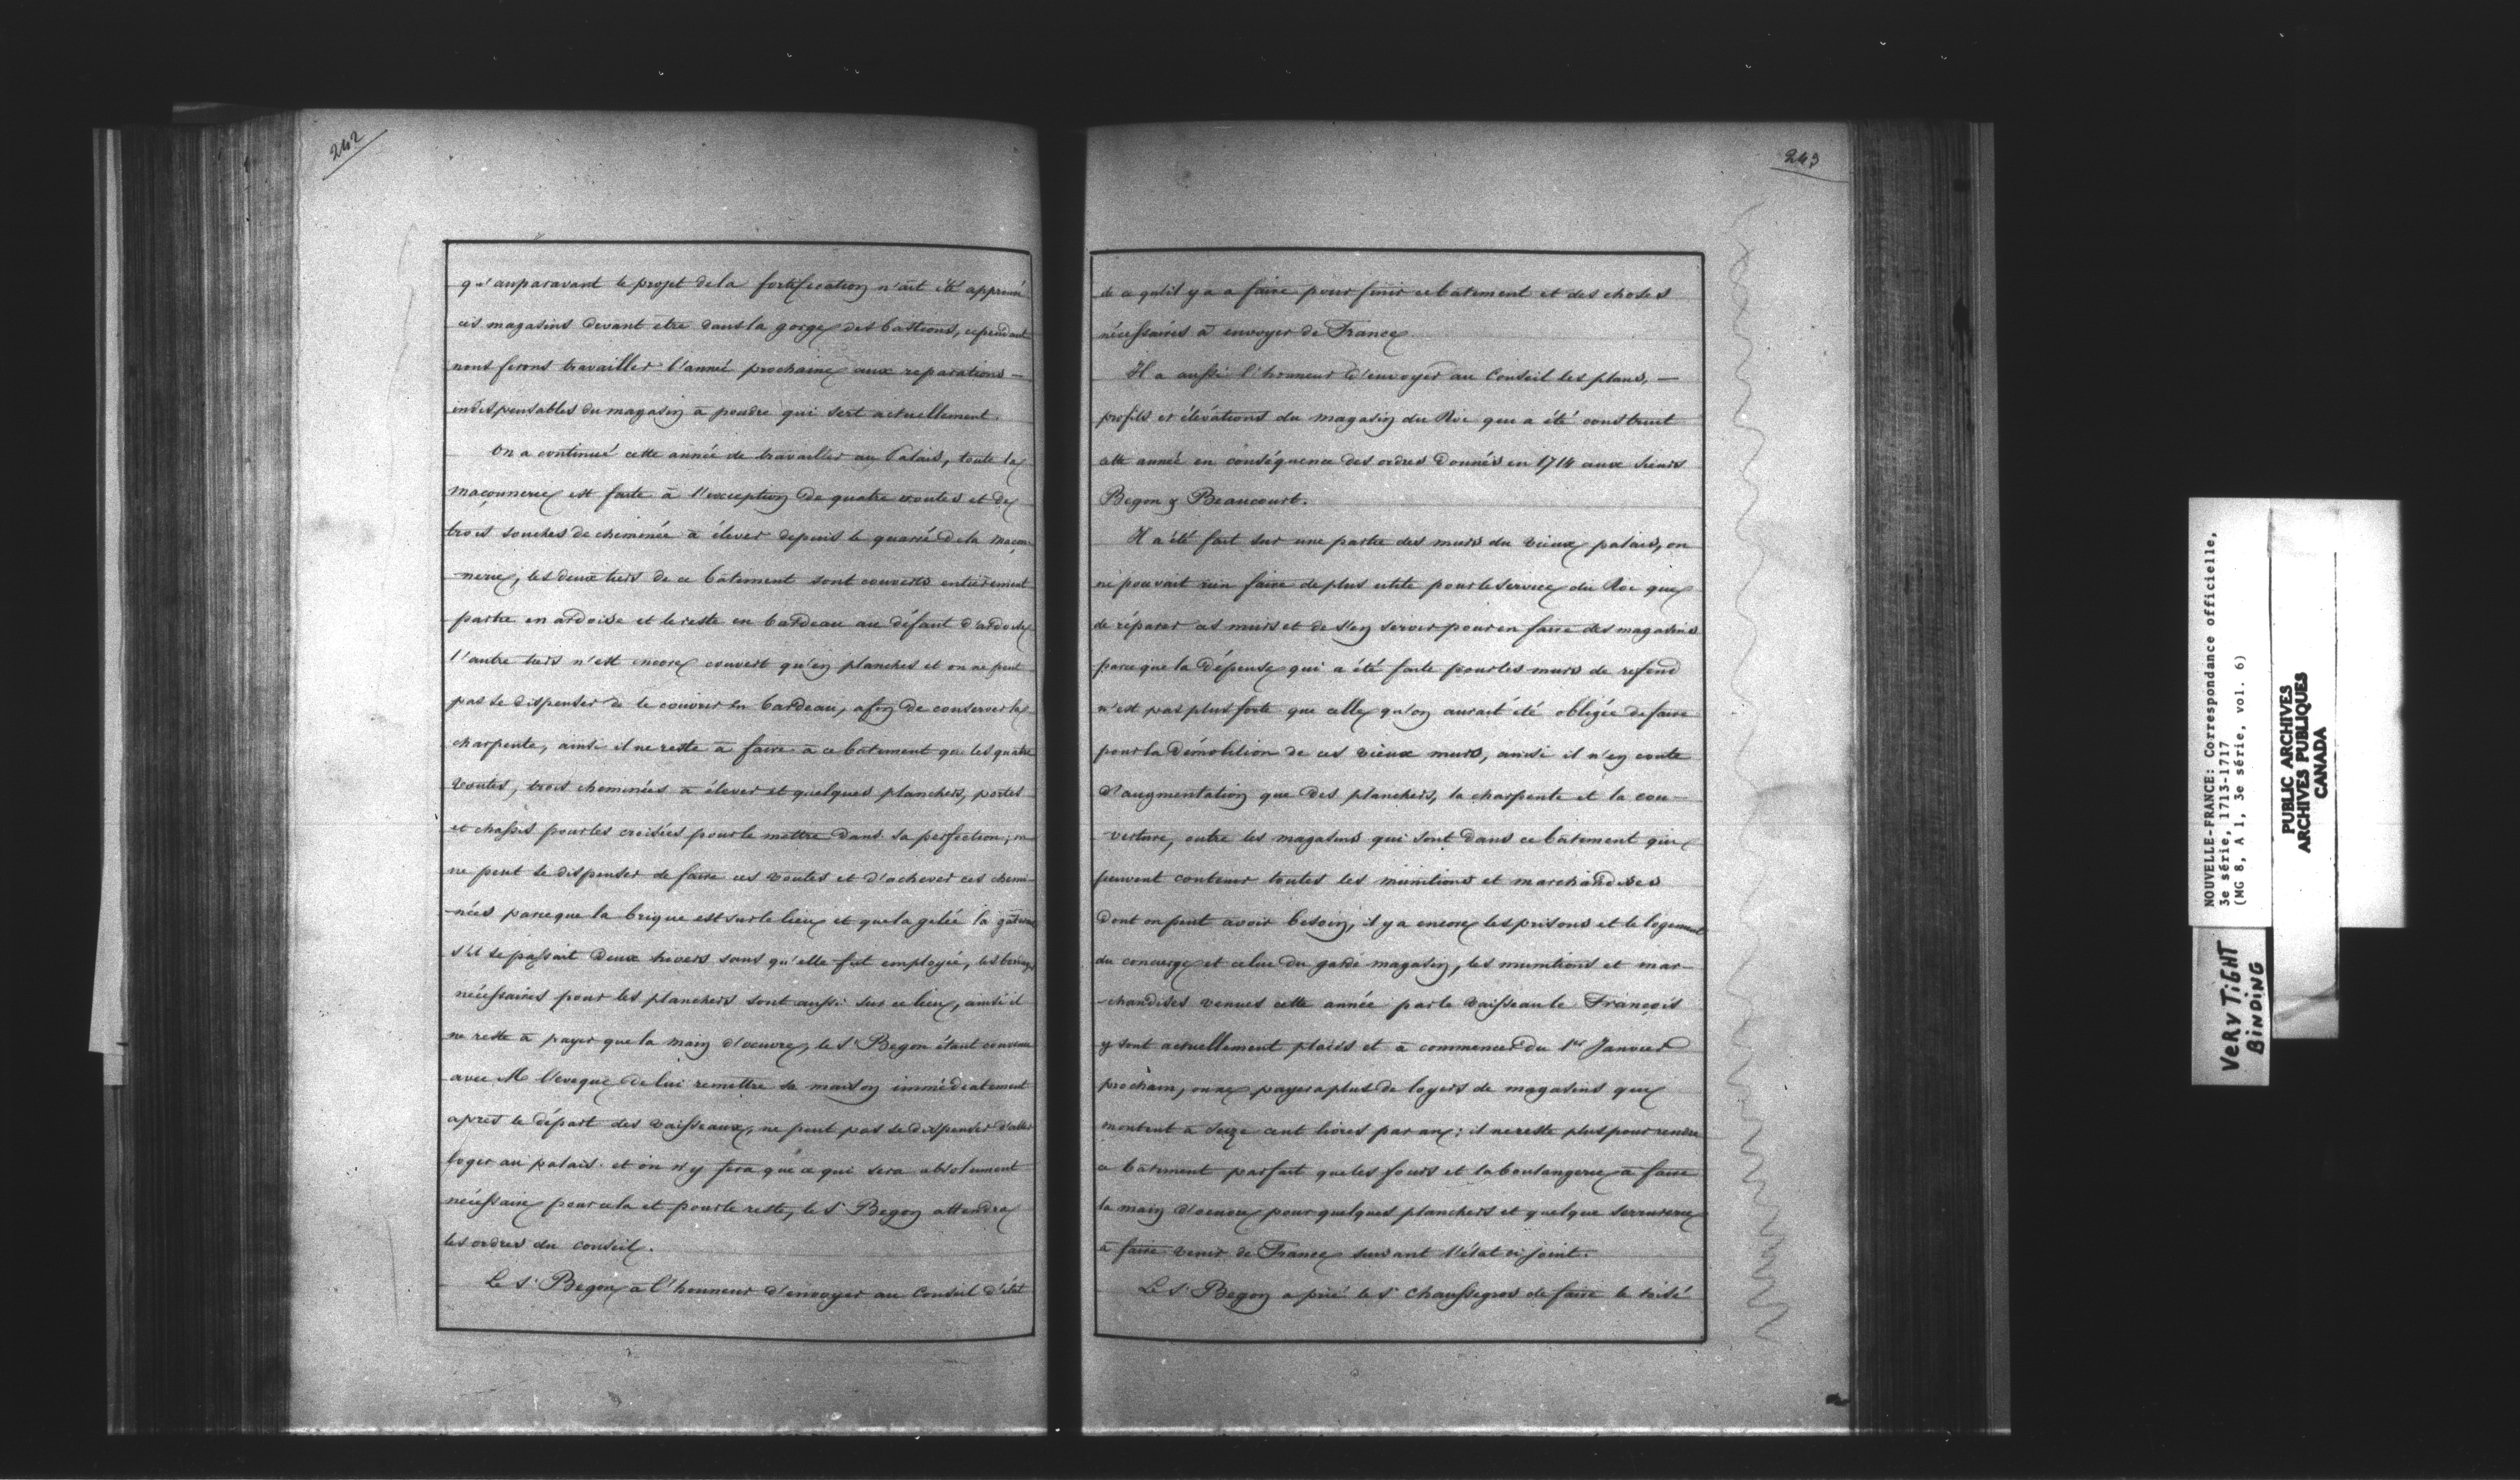 242
qu'auparavant le projet de la fortification n'ait été approuvé
ces magasins devant etre dans la gorge des bastions, cependant
nous ferons travailler l'année prochaine aux reparations —
indispensables du magasin à poudre qui sert actuellement.
On a continué cette année de travailler au Palais, toute la
maçonnerie est faite à l'exception de quatre voutes et de
trois souches de cheminée à élever depuis le quarré de la maçon-
nerie, les deux tiers de ce bâtiment sont couverts entièrement
partie en ardoise et le reste en bardeau au défaut d'ardoise
l'autre tiers n'est encore couvert qu'en planches et on ne peut
pas se dispenser de le couvrir en bardeau, afin de conserver la
charpente, ainsi il ne reste à faire à ce bâtiment que les quatre
voutes, trois cheminées à élever et quelques planchers, portes
et chassis pour les croisées pour le mettre dans sa perfection; on
ne peut se dispenser de faire ces voutes et d'achever ces chemi-
nées parce que la brique est sur le lieu et que la gelée la gâterait
s'il se passait deux hivers sans qu'elle fut employée, les
nécessaires pour les planchers sont aussi sur ce lieu, ainsi il
ne reste à payer que la main d'oeuvre, le Sr Begon étant convenu
avec M l'eveque de lui remettre sa maison immédiatement
après le départ des vaisseaux, ne peut pas se dispenser d'aller
loger au palais et on n'y fera que ce qui sera absolument
nécessaire pour cela et pour le reste, le Sr Begon attendra
les ordres du conseil.
Le Sr Begon à l'honneur d'envoyer au Conseil l'état
243
de ce qu'il y a a faire pour finir ce bâtiment et des choses
nécessaires à envoyer de France
Il a aussi l'honneur d'envoyer au Conseil les plans, —
profils et élévations du magasin du Roi qui a été construit
cette année en conséquence des ordres donnés en 1714 aux Sieurs
Begon & Beaucourt.
Il a été fait sur une partie des murs du vieux palais, on
ne pouvait rien faire de plus utile pour le service du Roi que
de réparer ces murs et de s'en servir pour en faire des magasins
parce que la dépense qui a été faite pour les murs de refend
n'est pas plus forte que celle qu'on aurait été obligée de faire
pour la démolition de ces vieux murs, ainsi il n'en coute
d'augmentation que des planchers, la charpente et la cou-
verture, outre les magasins qui sont dans ce bâtiment qui
peuvent contenir toutes les munitions et marchandises
dont on peut avoir besoin, il y a encore les prisons et le logement
du concierge et celui du garde magasin, les munitions et mar-
chandises venues cette année par le vaisseau le François
y sont actuellement placés et à commencer du 1er Janvier
prochain, on ne payera plus de loyers de magasins que
montent à seize cent livres par an; il ne reste plus pour rendre
ce bâtiment parfait que les fours et la boulangerie à faire
la main d'oeuvre pour quelques planchers et quelque serrurerie
à faire venir de France suivant l'état ci joint.
Le Sr Begon a prié le Sr Chaussegros de faire le toisé
NOUVELLE-FRANCE: Correspondance officielle,
3e série, 1713-1717
(MG 8, A 1, 3e série, vol. 6)
PUBLIC ARCHIVES
ARCHIVES PUBLIQUES
CANADA
VERY TIGHT
BINDING